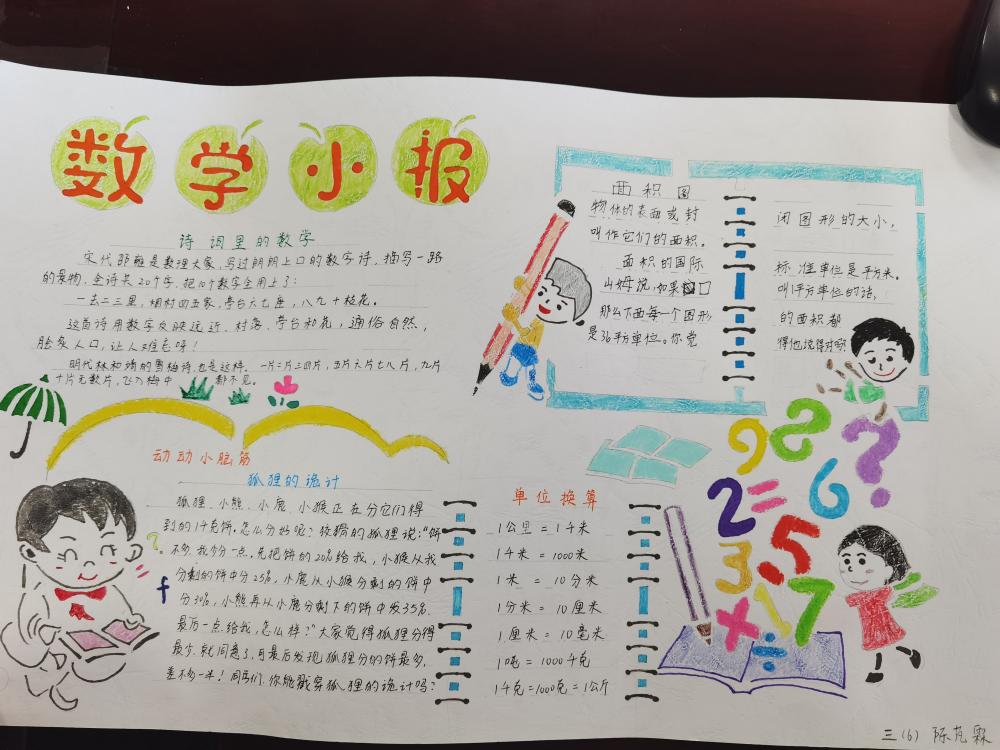 数学小报
诗词里的数学
宋代邵雍是数理大家,写过朗朗上口的数字诗.描写一路
的景物,全诗共20个字.把10个数字全用上了:
一去二三里,烟村四五家,亭台六七座,八九十枝花。
这首诗用数字反映远近、村落、亭台和花,通俗自然,
脍炙人口,让人难忘呀!
明代林和靖的雪梅诗,也是这样.一片二片三四片,五片六片七八片,九片
十片无数片,飞入梅中 都不见。
面积图
物体的表面或封
叫作它们的面积。
面积的国际
山姆说,如果□
那么下面每一个图形
是36平方单位。你觉
闭图形的大小,
标准单位是平方米。
叫1平方单位的话,
的面积都
得他说得对吗
动动小脑筋
狐狸的诡计
狐狸、小熊、小鹿、小猴正在分它们得
到的1千克饼,怎么分好呢?狡猾的狐狸说:“饼
不多,我少分一点,先把饼的20%给我,小猴从我
分剩的饼中分25%,小鹿从小猴分剩的饼中
分30%,小熊再从小鹿分剩下的饼中发35%.
最后一点给我,怎么样?”大家觉得狐狸分得
最少.就同意了,可最后发现,狐狸分的饼最多,
差不多一半!同学们.你能戳穿狐狸的诡计吗?
单位换算
1公里=1千米
1千米=1000米
1米=10分米
1分米=10厘米
1厘米=10毫米
1吨=1000千克
1千克=1000克=1公斤
9 8 ?
2 = 6
3 5
× 1 7
÷
三(6) 陈芃霖